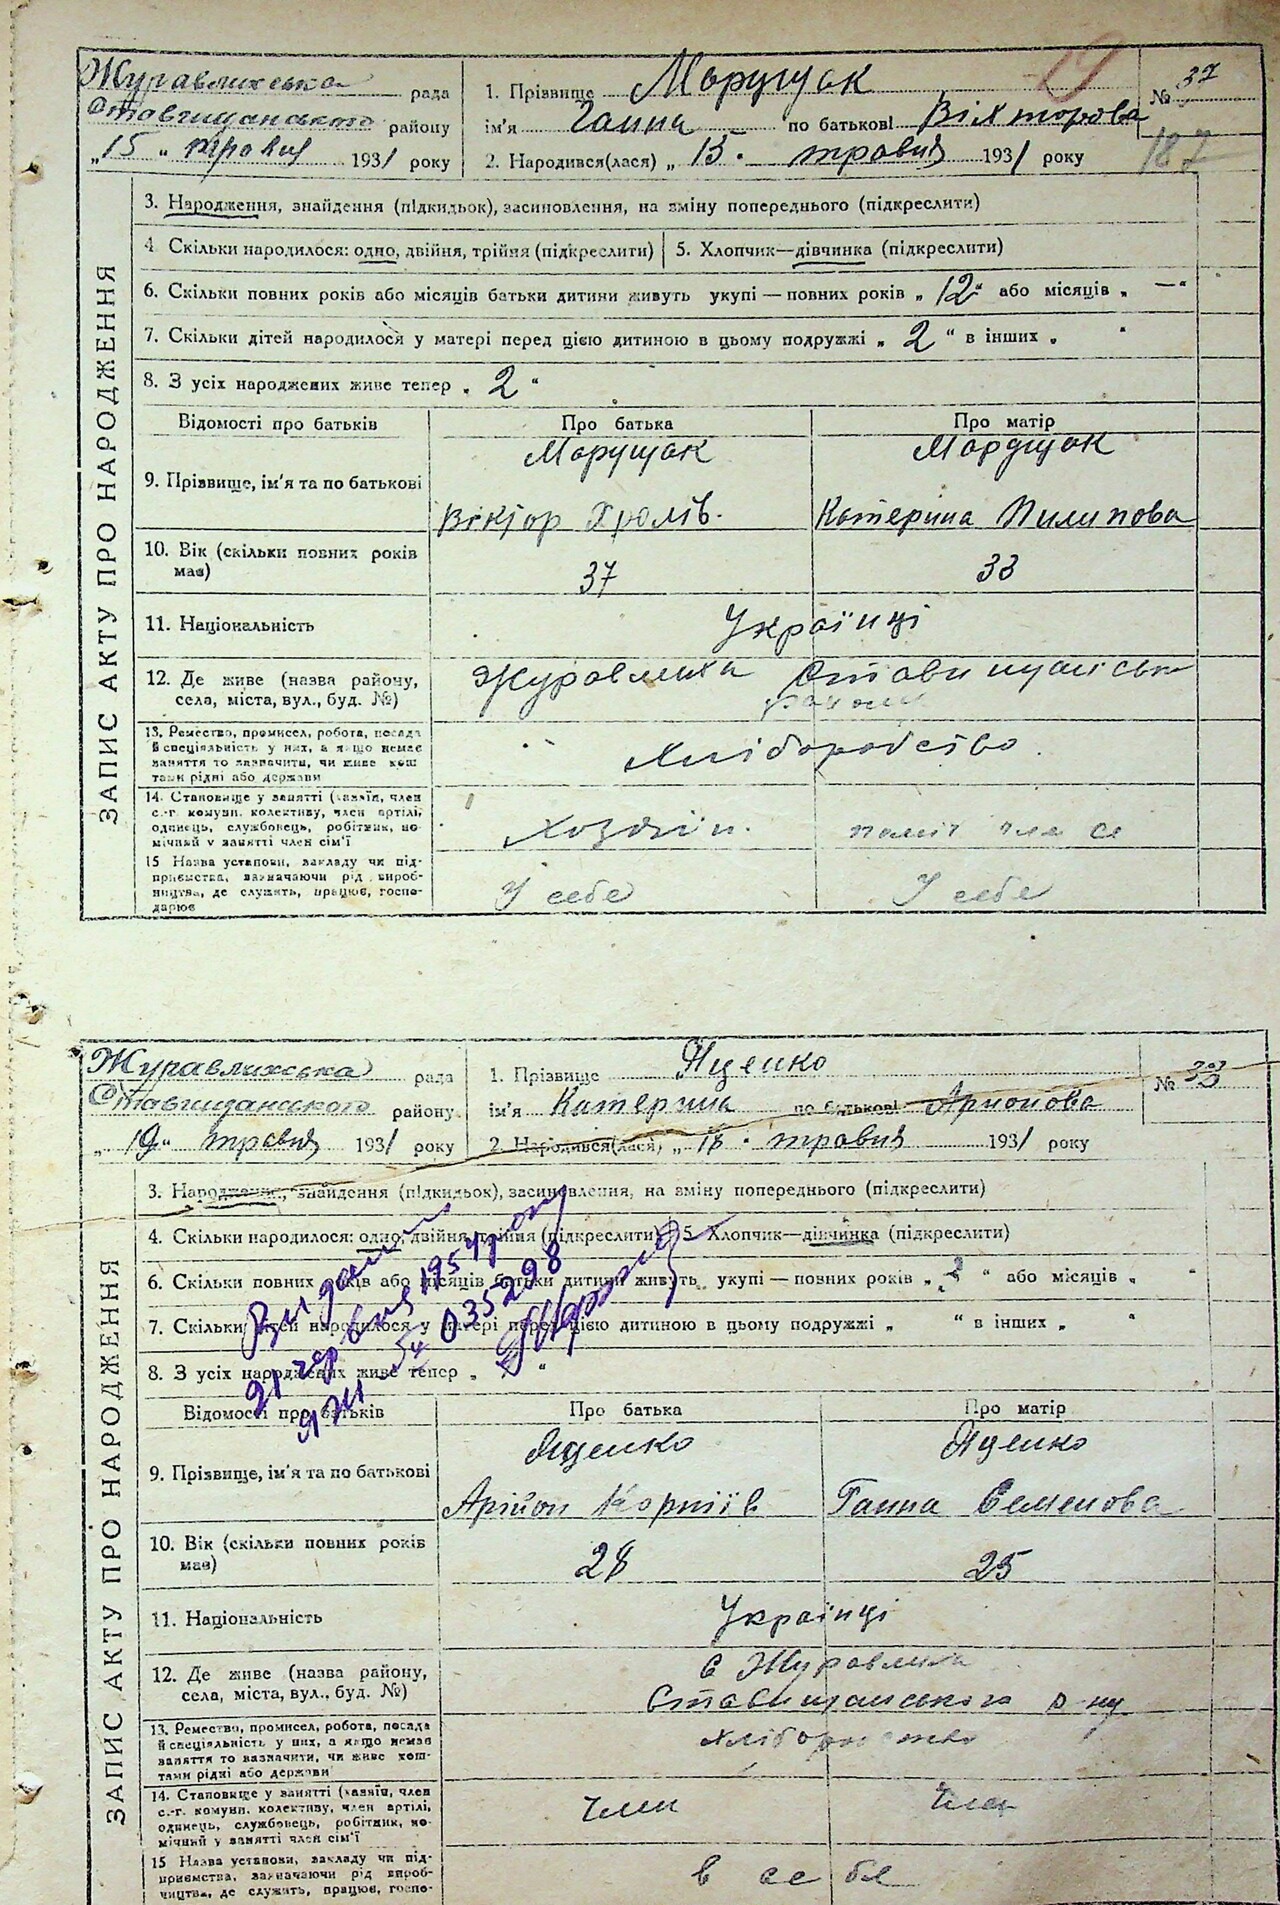 Журавлихська рада
Ставищанського району
„15„ травня 1931 року
1. Прізвище Марущак
ім'я Ганна по батькові Вікторова
2. Народився(лася) „ 15. травня 1931 року
19
№ 37
187
ЗАПИС АКТУ ПРО НАРОДЖЕННЯ
3. Народження, знайдення (підкидьок), засиновлення, на зміну попереднього (підкреслити)
4 Скільки народилося: одно, двійня, трійня (підкреслити) 5. Хлопчик—дівчинка (підкреслити)
6. Скільки повних років або місяців батьки дитини живуть укупі — повних років „ 12 " або місяців „ — "
7. Скільки дітей народилося у матері перед цією дитиною в цьому подружжі „ 2 " в інших „ "
8. З усіх народжених живе тепер „ 2 "
Відомості про батьків Про батька Про матір
9. Прізвище, ім'я та по батькові
Марущак Марущак
Віктор Катерина Пилипова
10. Вік (скільки повних років має) 37 33
11. Національність Українці
12. Де живе (назва району, села, міста, вул., буд. №)
Журавлиха Ставищанськ
району
13. Ремество, промисел, робота, посада й спеціяльність у них, а якщо немає заняття то зазначити, чи живе коштами рідні або держави
Хліборобство
14. Становище у занятті (хазяїн, член с.-г. комуни, колективу, член артілі, одинець, службовець, робітник, помічний у занятті член сім'ї
Хозяїн.
15 Назва установи, закладу чи підприємства, зазначаючи рід виробництва, де служить, працює, господарює
У себе У себе
Журавлихська рада
Ставищанського району
„19" травня 1931 року
1. Прізвище Яценко
ім'я Катерина по батькові Арионова
2. Народився(лася) „ 18. травня 1931 року
№ 38
ЗАПИС АКТУ ПРО НАРОДЖЕННЯ
3. Народження, знайдення (підкидьок), засиновлення, на зміну попереднього (підкреслити)
4. Скільки народилося: одно, двійня, трійня (підкреслити) 5. Хлопчик—дівчинка (підкреслити)
6. Скільки повних років або місяців батьки дитини живуть укупі — повних років „ 2 " або місяців „ "
7. Скільки дітей народилося у матері перед цією дитиною в цьому подружжі „ " в інших „ "
8. З усіх народжених живе тепер „ "
Видано
21 червня 1954 року
035298
Відомості про батьків Про батька Про матір
9. Прізвище, ім'я та по батькові
Яценко Яценко
Арійон Корніїв Ганна Семенова
10. Вік (скільки повних років має) 28 25
11. Національність Українці
12. Де живе (назва району, села, міста, вул., буд. №)
с Журавлиха
Ставищанського р-ну
13. Ремество, промисел, робота, посада й спеціяльність у них, а якщо немає заняття то зазначити, чи живе коштами рідні або держави
Хліборобство
14. Становище у занятті (хазяїн, член с.-г. комуни, колективу, член артілі, одинець, службовець, робітник, помічний у занятті член сім'ї
Член Член
15 Назва установи, закладу чи підприємства, зазначаючи рід виробництва, де служить, працює, госпо-
в се бе